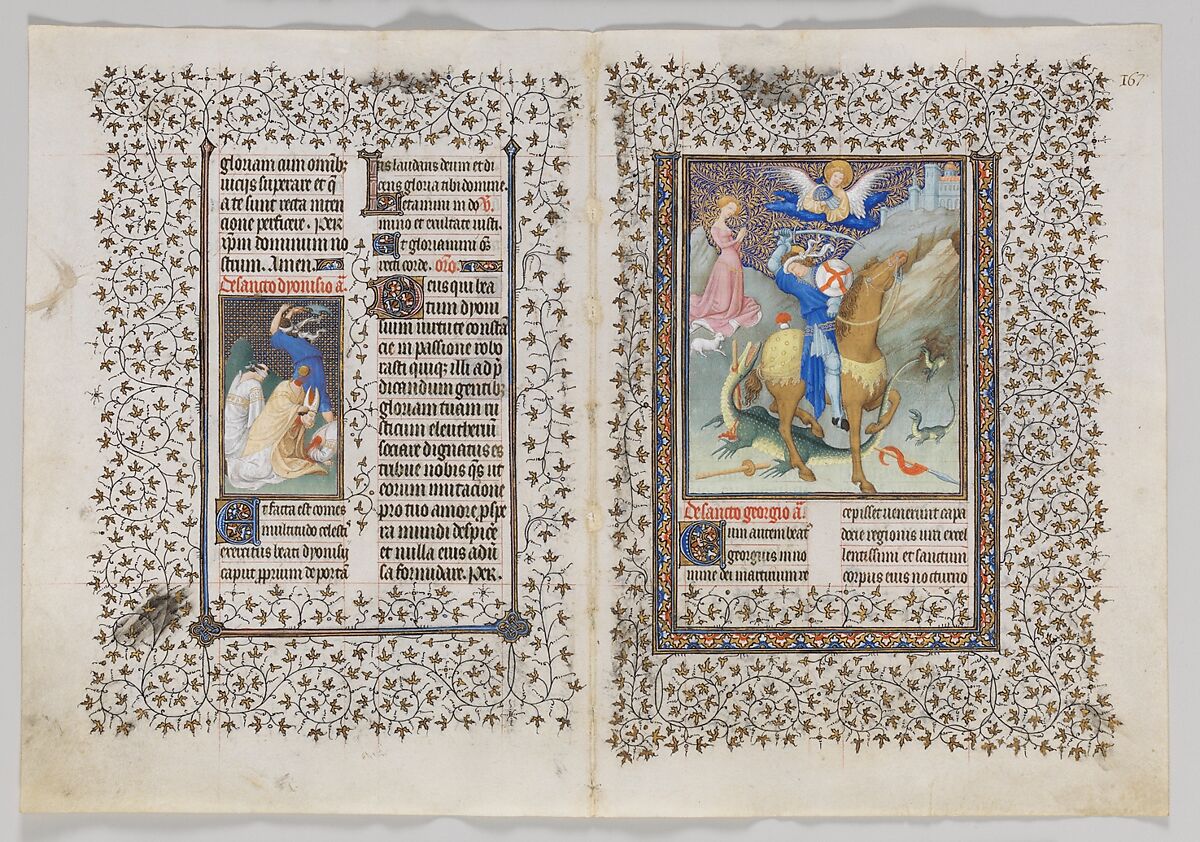 gloriam cum omnibꝫ
uicijs superare et q̄
a te sunt recta inten
cione perficere. per
xp̄m dominum no
strum. Amen.
De sancto dyonisio a̅.
Et facta est comes
multitudo celest̄
exercitus beati dyonisij
caput p̄prium de portā
tis laudans deum et di
cens gloria tibi domine.
Letamini in do℣.
mino et exultate iusti.
Et gloriamini o̅s
recti corde. oro̅.
Deus qui bea
tum dyoni
sium uirtute consta
cie in passione robo
rasti quiqꝫ illi ad p̄
dicandum gentibꝫ
gloriam tuam ru
sticum eleutheriū
sociare dignatus es
tribue nobis q̄s ut
eorum imitacione
pro tuo amore p̄spe
ra mundi despice̅
et nulla eius adu̅
sa formidare. Per.
167
De sancto georgio a̅.
Cum autem beat̄
georgius in no
mine dei martirium re
cepisset uenerunt capa
docie regionis uiri excel
lentissimi et sanctum
corpus eius nocturno